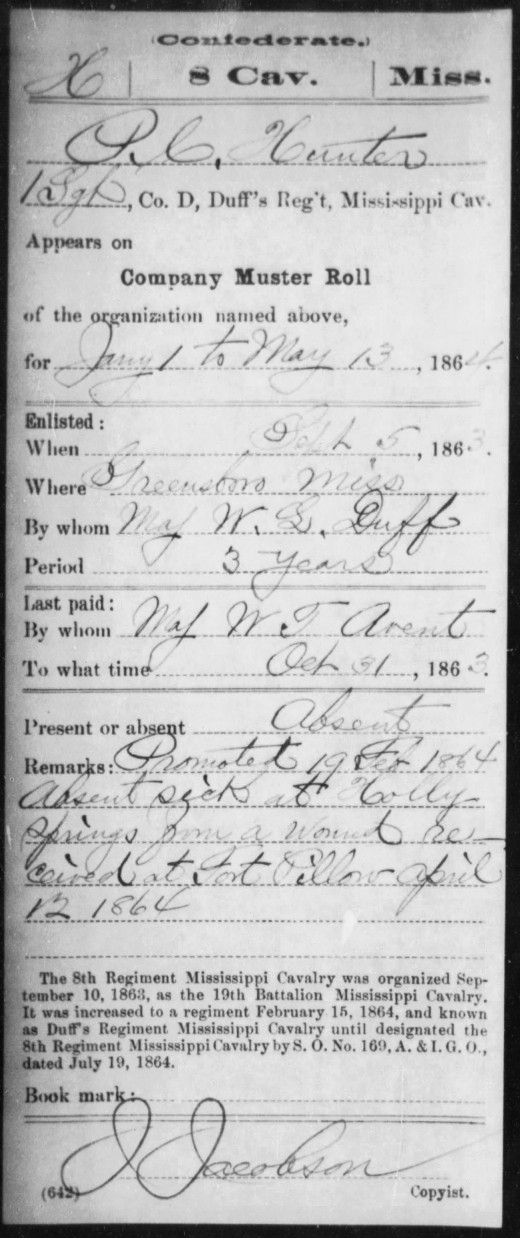 (Confederate.)
H | 8 Cav. | Miss.
P. C. Hunter
1 Sgt, Co. D, Duff's Reg't, Mississippi Cav.
Appears on
Company Muster Roll
of the organization named above,
for Jany 1 to May 13, 1864.
Enlisted:
When Sept 5, 1863.
Where Greensboro Miss
By whom Maj W. L. Duff
Period 3 years
Last paid:
By whom Maj W T Avent
To what time Oct 31, 1863.
Present or absent Absent
Remarks: Promoted 19 Feb 1864
Absent sick at Holly
Springs from a wound re-
ceived at Fort Pillow April
12 1864
The 8th Regiment Mississippi Cavalry was organized Sep-
tember 10, 1863, as the 19th Battalion Mississippi Cavalry.
It was increased to a regiment February 15, 1864, and known
as Duff's Regiment Mississippi Cavalry until designated the
8th Regiment Mississippi Cavalry by S. O. No. 169, A. & I. G. O.,
dated July 19, 1864.
Book mark:
J Jacobson
(642) Copyist.